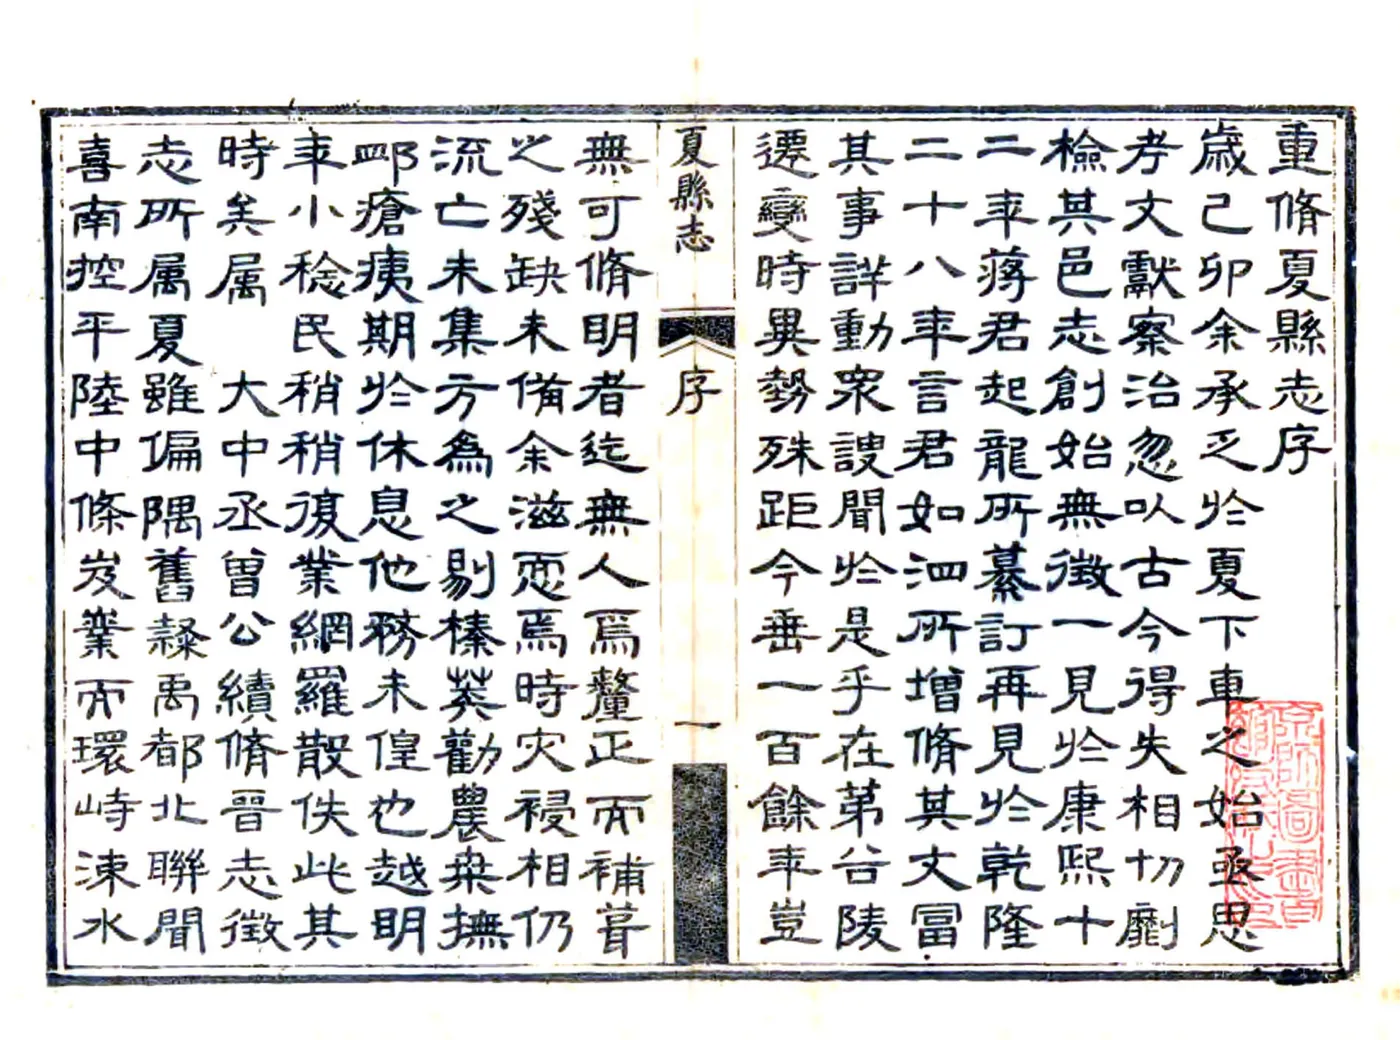 重脩夏縣志序
歲己卯余承乏於夏下車之始亟思
考文獻察治忽以古今得失相切劘
檢其邑志創始無徵一見於康熙十
二年蔣君起龍所纂訂再見於乾隆
二十八年言君如泗所增脩其文富
其事詳動衆謏聞於是乎在第谷陵
遷變時異勢殊距今垂一百餘年豈
夏縣志
序
一
無可脩明者迄無人焉釐正而補葺
之殘缺未備余滋恧焉時灾祲相仍
流亡未集方為之剔榛莽勸農桒撫
卹瘡痍期於休息他務未偟也越明
年小稔民稍稍復業網羅散佚此其
時矣属　大中丞曾公續脩晉志徵
志所属夏雖偏隅舊隸禹都北聯聞
喜南控平陸中條岌嶪而環峙涑水